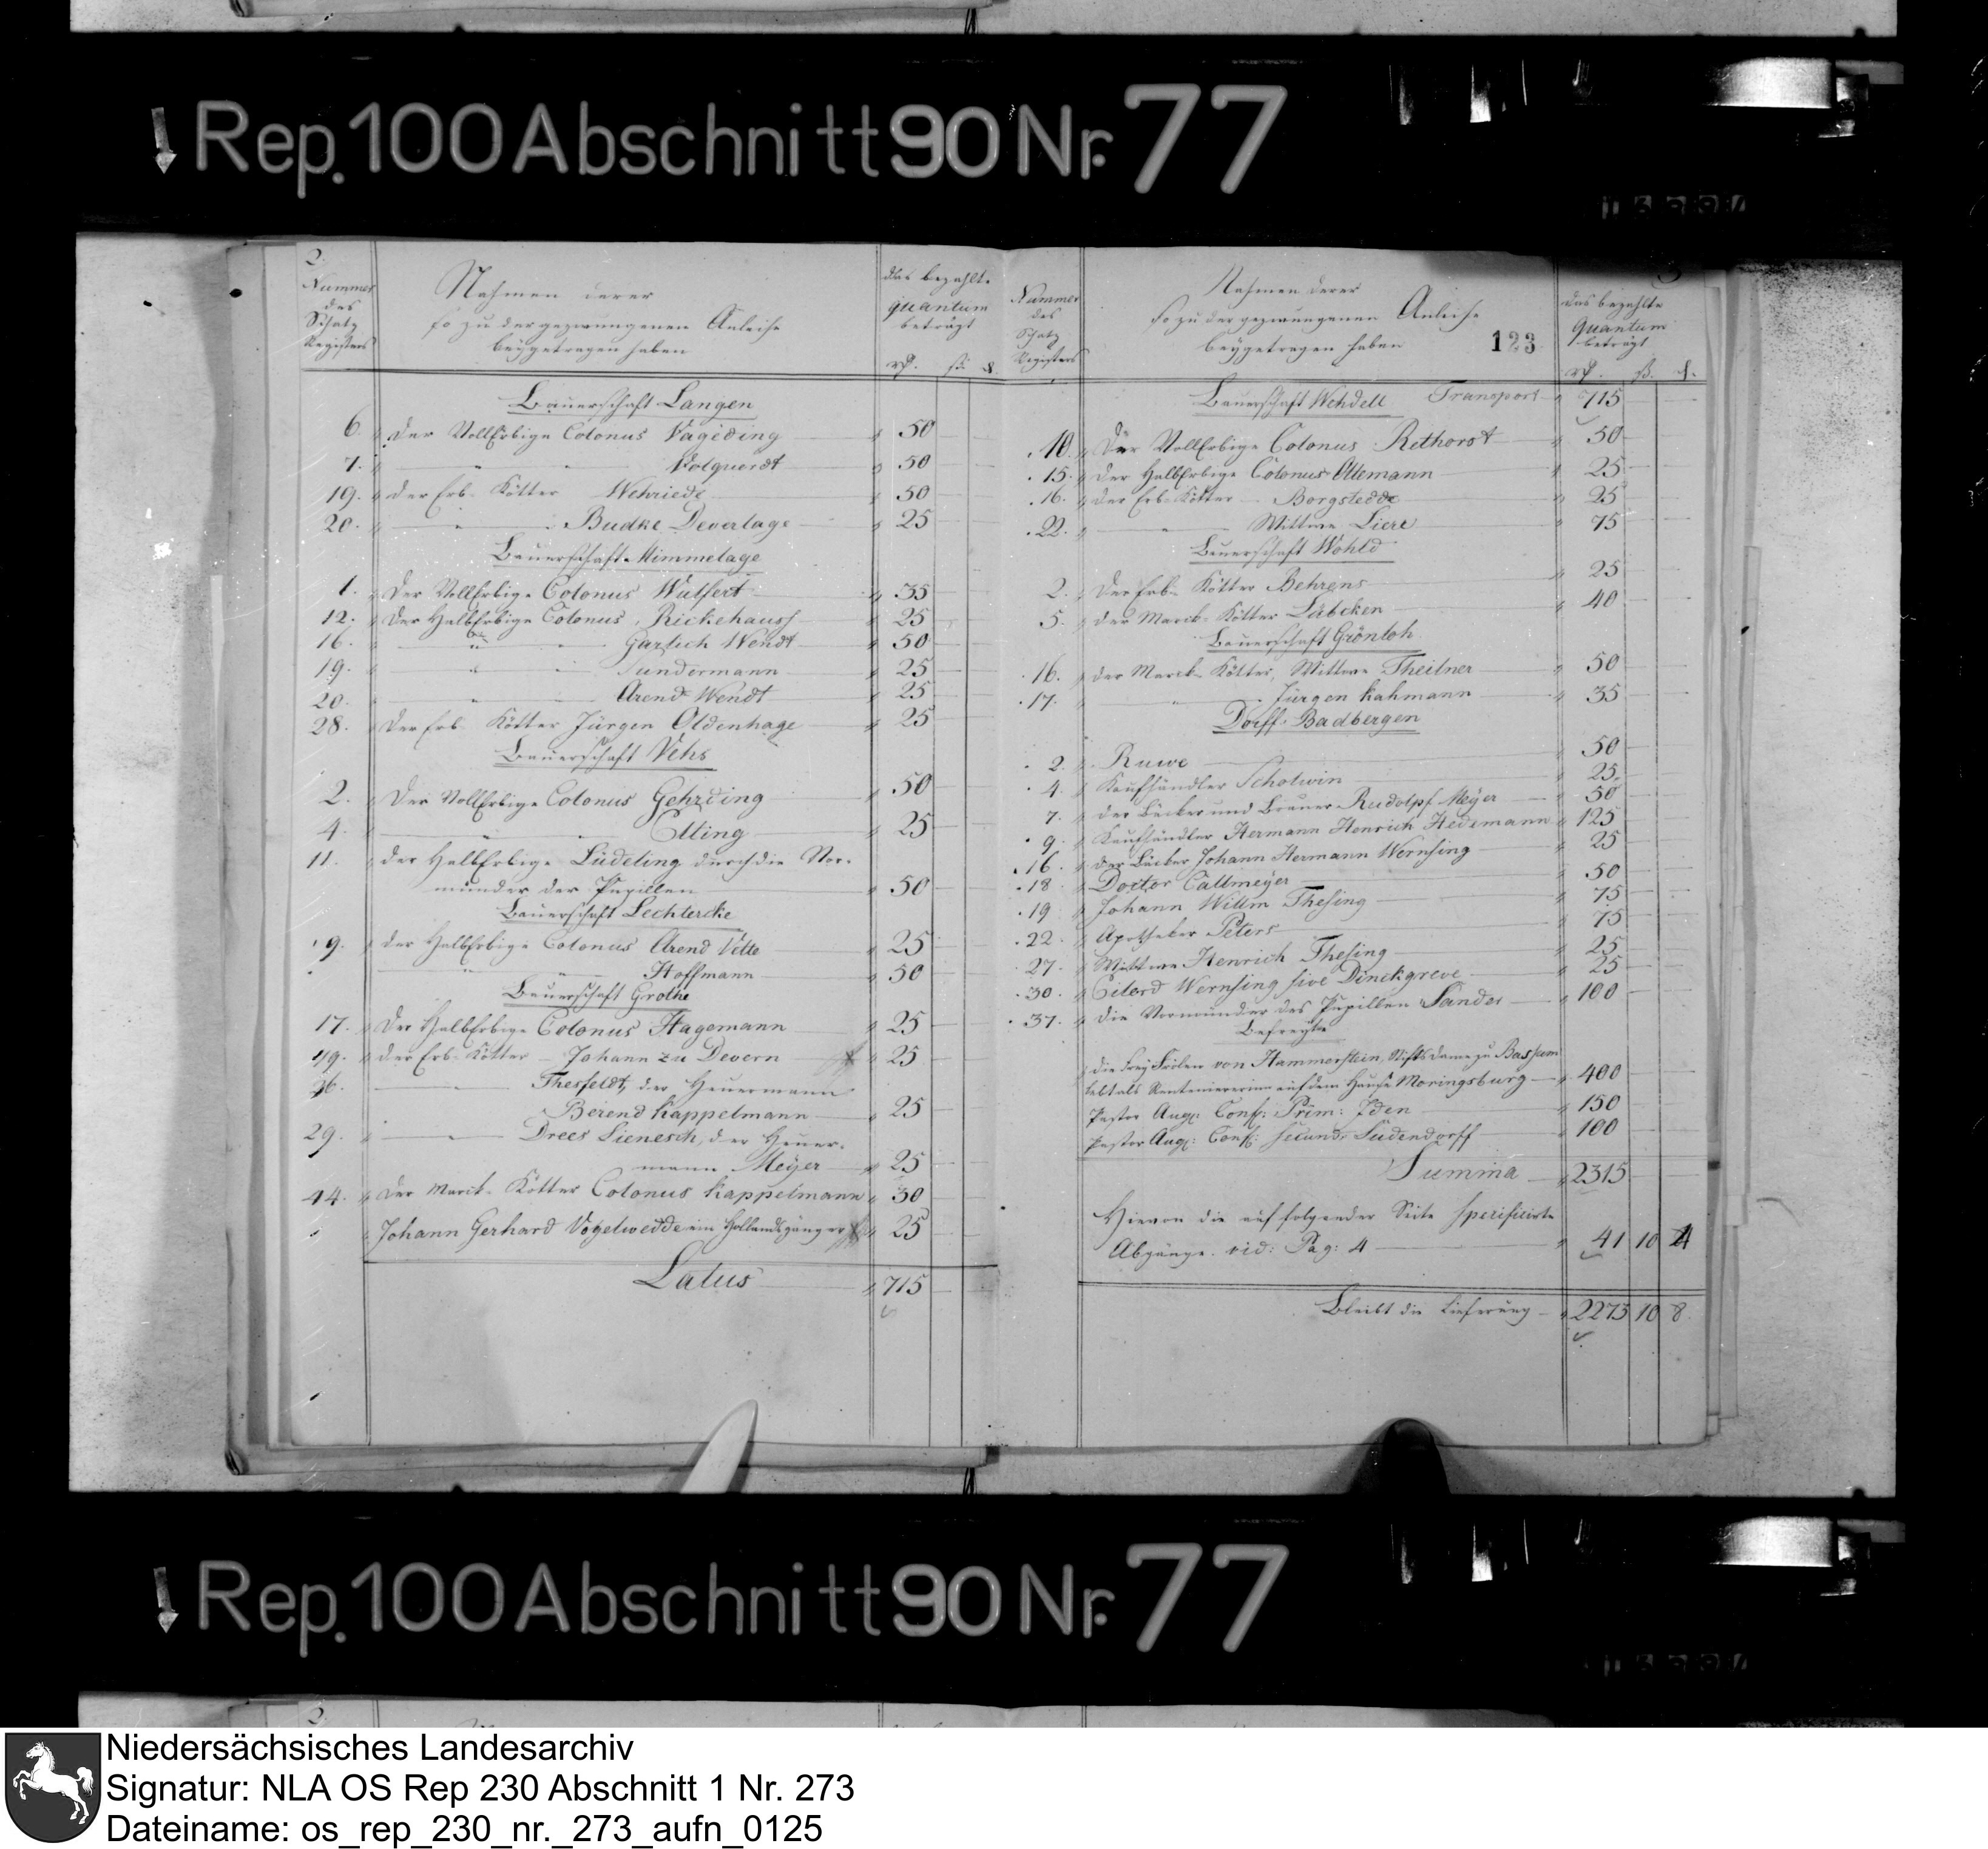 Rep. 100 Abschnitt 90 Nr. 77
2.
Nummer des Schatz Registers
Nahmen derer
so zu der gezwungenen Anleihe
beygetragen haben
das bezahlte
quantum
beträgt
Bauerschaft Langen
6. Der Vollerbige Colonus Vageding 50
7. 50
19. Der Erb- Kötter Wehriede 50
20. Budke Deverlage 25
Bauerschaft Mimmelage
1. Der Vollerbige Colonus Wulfert 35
12. Der Halberbige Colonus Rickehauss 25
16. Garlich Wendt 50
19. Sundermann 25
20. Arend Wendt 25
28. Der Erb- Kötter Jürgen Oldenhage 25
Bauerschaft Vehs
2. Der Vollerbige Colonus Gehrding 50
4. Elting 25
11. der Halberbige Lüdeling durch die Vor-
münder der Pupillen 50
Bauerschaft Lechtercke
9. der Halberbige Colonus Arend Vette 25
Hoffmann 50
Bauerschaft Grothe
17. Der Halberbige Colonus Hagemann 25
19. der Erb- Kötter Johann zu Devern 25
26. Thesfeldt, der Heuermann
Berend Kappelmann 25
29. Drees Lienesch, der Heuer-
mann Meÿer 25
44. der Marck- Kötter Colonus Kappelmann 30
Johann Gerhard Vogelwedde ein Hollandsgänger 25
Latus 715
Nummer des Schatz Registers
Nahmen derer
so zu der gezwungenen Anleihe
beygetragen haben
123
das bezahlte
quantum
beträgt
Bauerschaft Wehdell Transport 715
10. Der Vollerbige Colonus Rethorst 50
15. der Halberbige Colonus Ottemann 25
16. der Erb- Kötter Borgstedde 25
22. Wittwe Liere 75
Bauerschaft Wohld
2. Der Erb- Kötter Behrens 25
5. der Marck- Kötter Lübcken 40
Bauerschaft Grönloh
16. der Marck- Kötter, Wittwe Theilner 50
17. Jürgen Kahmann 35
Dorff Badbergen
2. Ruwe 50
4. Kaufhändler Scholwin 25
7. der Bäcker und Brauer Rudolph Meÿer 50
9. Kaufhändler Hermann Henrich Hedemann 125
16. der Bäcker Johann Hermann Wernsing 25
18. Doctor Callmeÿer 50
19. Johann Willm Thesing 75
22. Apotheker Peters 75
27. Wittwe Henrich Thesing 25
30. Eilerd Wernsing sive Dinckgreve 25
37. die Vormünder des Pupillen Sander 100
Befreyte
die Frey Frölen von Hammerstein, Stifts dame zu Bassum
lebt als Renteniererin auf dem Hause Moringsburg 400
Pastor Aug: Conf: Prim: Iden 150
Pastor Aug: Conf: secund: Südendorff 100
Summa 2315
Hievon die auf folgender Seite specificirte
Abgänge vid: Pag: 4 41 10 4
Bleibt die Lieferung 2273 10 8
Rep. 100 Abschnitt 90 Nr. 77
Niedersächsisches Landesarchiv
Signatur: NLA OS Rep 230 Abschnitt 1 Nr. 273
Dateiname: os_rep_230_nr._273_aufn_0125